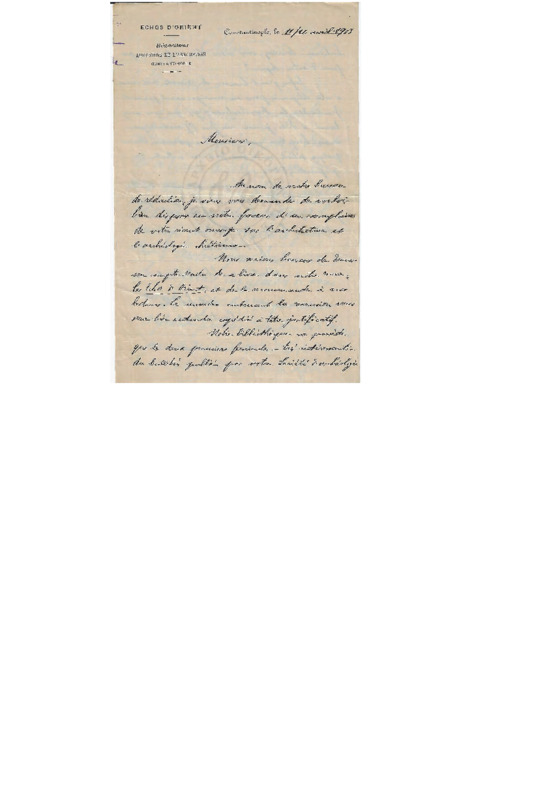 ECHOS D'ORIENT
Constantinople, le 11/24 avril 1913
Monsieur,
Au nom de notre bureau
de rédaction, je viens vous demander de vouloir
bien disposer en notre faveur d'un exemplaire
de votre récent ouvrage sur l'architecture et
l'archéologie
Nous aurions l'honneur de
compte-rendu de ce livre dans notre revue,
les Echos d'Orient, et de le recommander à nos
lecteurs. Le numéro contenant la recension vous
sera bien entendu expédié à titre justificatif.
Notre bibliothèque ne possède
que les deux premiers fascicules - très intéressants -
du bulletin publié par votre Société d'archéologie